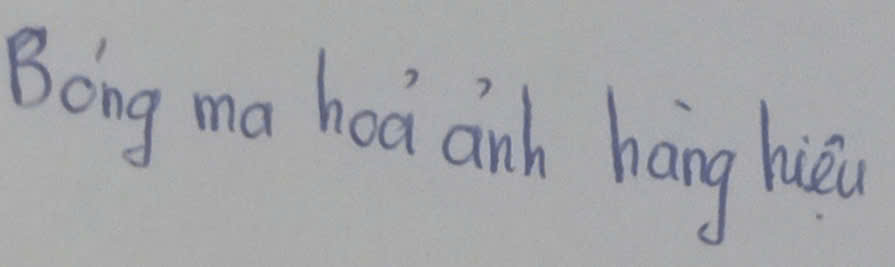 Bóng ma hoả ảnh hàng hiệu